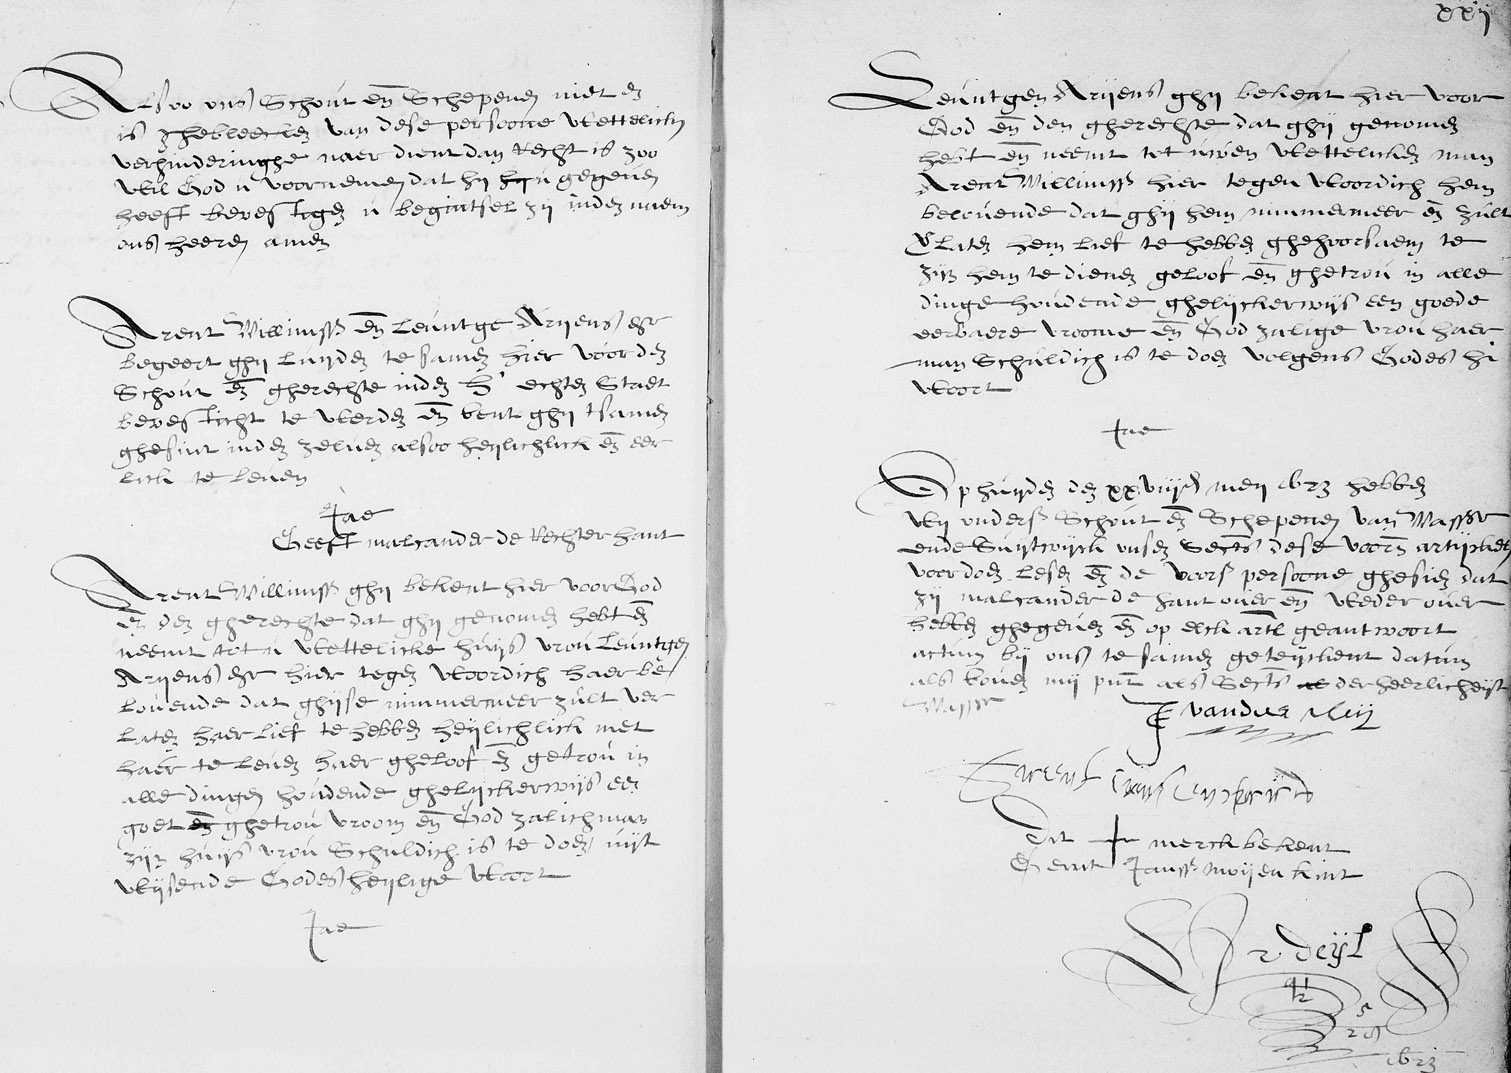 Alsoo ons Schout en̄ Schepenen niet en
is ghebleecken van dese persoone wettelicke
verhinderinghe naer dient dan Recht is zoo
wil God u voornemen dat hij u gegeven
heeft bevestigen u begintsel zij inden naem
ons heeren amen
Arent Willimss en̄ Leuntge Arijens dr
begeert ghij luijden te samen hier voor den
Schout en̄ gherechte inden h. echten Staet
bevesticht te werden en̄ bent ghij tsamen
ghesint inden zelven alsoo heijlichlick en̄ eer
lick te leven
Jae
Geeft malcander de Rechterhant
Arent Willimss ghij bekent hier voor God
en̄ den gherechte dat ghij genomen hebt en̄
neemt tot u wettelicke huijs vrou Leuntgen
Arijens dr hier tegen woordich haer be
lovende dat ghijse nimmermeer zult ver
laten haer lief te hebben heijlichlick met
haer te leven haer gheloof en̄ getrou in
alle dingen houdende ghelijckerwijs een
goet en̄ ghetrou vroom en̄ God zalich man
zijn huijs vrou Schuldich is te doen uijt
wijsende Godes heijlige Woort
Jae
xxij
Leuntgen Arijens ghij bekent hier voor
God en̄ den gherechte dat ghij genomen
hebt en̄ neemt tot uwen wettelicken man
Arent Willimss hier tegen woordich hem
belovende dat ghij hem nimmermeer en zult
Vlaten hem lief te hebben ghehoorsaem te
zijn hem te dienen geloof en̄ ghetrou in alle
dinge houdende ghelijckerwijs een goede
eerbaere vroome en̄ God zalige vrou haer
man Schuldich is te doen volgens Godes hi
Woort
Jae
Op huijden den xxviijen meij 1623 hebben
Wij onders Schout en̄ Schepenen van Wassr
ende Suijtwijck onsen Sects dese voorn artijckelen
voordoen lesen en̄ de voors persoone ghesien dat
zij malcander de hant over en̄ weder over
hebben ghegeven en̄ op elck artl geantwoort
actum bij ons te samen geteijckent datum
als boven mij pnt als Sects der heerlicheijt
Wassr
vander Meij
Dit merck bekent
Gerrit Janss moijen kint
1623